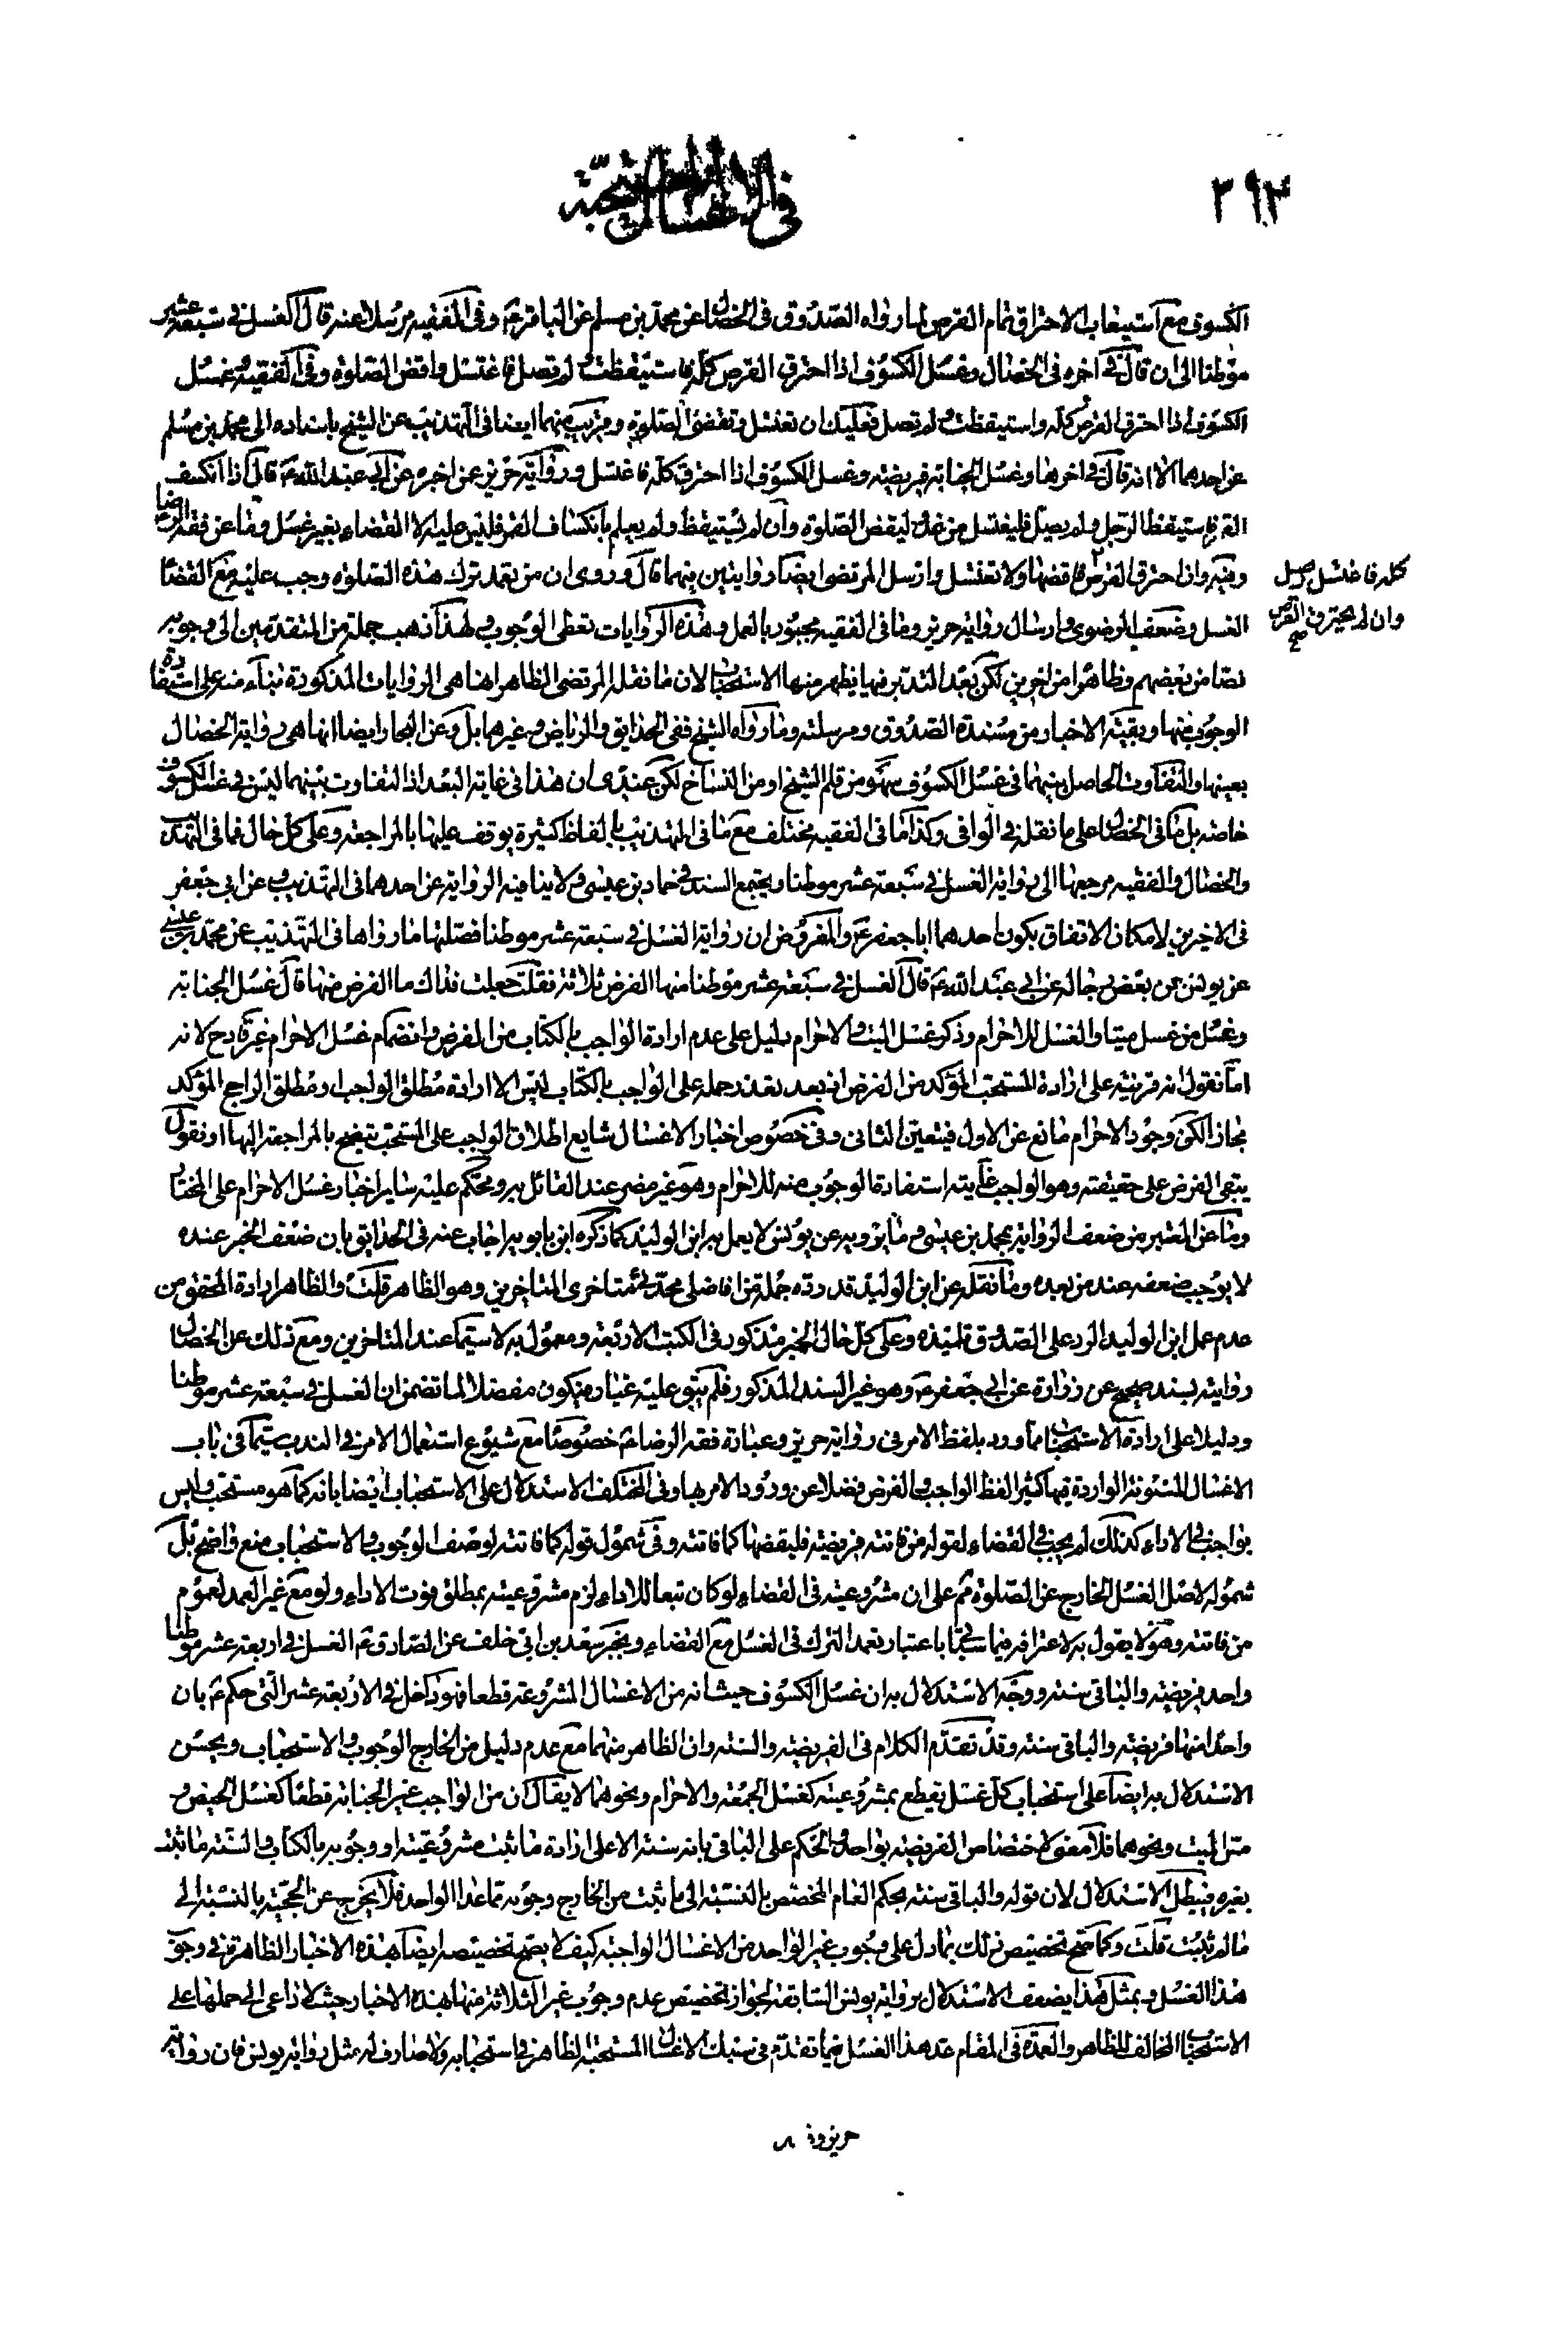 ٣٩٣
في الاغسال المستحبّة
الكسوف مع استيعاب الاحتراق تمام القرص لما رواه الصّدوق فى الخصال عن محمّد بن مسلم عن الباقر ع وفى الفقيه مرسلا عنه قال الغسل فى سبعة عشر
موطنا الى ان قال فى اخره فى الخصال وغسل الكسوف اذا احترق القرص كلّه فاستيقظت ولم تصل فاغتسل واقض الصّلوة وفى الفقيه وغسل
الكسوف اذا احترق القرص كله واستيقظت ولم تصل فعليك ان تغتسل وتقضى الصّلوة وقريب منهما ايضا فى التهذيب عن الشيخ باسناده الى محمّد بن مسلم
عن احدهما الا انه قال فى اخرها وغسل الجنابة فريضة وغسل الكسوف اذا احترق كلّه فاغتسل ورواية حريز عن اخبره عن ابى عبد الله ع قال اذا انكسف
القمر فاستيقظ الرّجل ولم يصل فليغتسل من غد وليقض الصّلوة وان لم يستيقظ ولم يعلم بانكساف القمر فليس عليه الا القضاء بغير غسل وما عن فقه الرضا
وفيه وان احترق القرص فاقضها ولا تغتسل وارسل المرتضى ايضا روايتين بينهما قال وروى ان من تعمد ترك هذه الصّلوة وجب عليه مع القضا
كله فاغتسل وصل
وان لم يحترق القرص
صح
الغسل وضعف الرضوى وارسال رواية حريز وما فى الفقيه مجبور بالعمل وهذه الروايات تعطى الوجوب ولهذا ذهب جملة من المتقدمين الى وجوبه
نصا من بعضهم وظاهرا من اخرين لكن بعد التدبر فيها يظهر منها الاستحباب لان ما نقله المرتضى الظاهر انها هى الروايات المذكورة بناء منه على استفادة
الوجوب منها وبقية الاخبار من مسندة الصّدوق ومرسلته وما رواه الشيخ ففى الحدايق والرياض وغيرهما بل وعن البحار ايضا انها هى رواية الخصال
بعينها والتفاوت الحاصل بينهما فى غسل الكسوف سهو من قلم الشيخ او من النساخ لكن عندى ان هذا فى غاية البعد اذ التفاوت بينهما ليس فى غسل الكسوف
خاصه بل ما فى الخصال على ما نقله فى الوافى وكذا ما فى الفقيه مختلف مع ما فى التهذيب بالفاظ كثيرة يوقف عليها بالمراجعة وعلى كل حال فما فى التهذيب
والخصال والفقيه مرجعها الى رواية الغسل فى سبعة عشر موطنا ويجتمع السند فى حماد بن عيسى ولا ينافيه الرواية عن احدهما فى التهذيب وعن ابى جعفر
فى الاخرين لامكان الاتفاق بكون احدهما ابا جعفر ع والمفروض ان رواية الغسل فى سبعة عشر موطنا فصلتها ما رواها فى التهذيب عن محمّد بن عيسى
عن يونس عن بعض رجاله عن ابى عبد الله ع قال الغسل فى سبعة عشر موطنا منها الفرض ثلاثة فقلت جعلت فداك ما الفرض منها قال غسل الجنابة
وغسل من غسل ميتا والغسل للاحرام وذكر غسل الميت والاحرام دليل على عدم ارادة الواجب بالكتاب من الفرض وانضمام غسل الاحرام غير قادح لانه
اما نقول انه قرينة على ارادة المستحب المؤكد من الفرض اذ بعد تعذر حمله على الواجب بالكتاب ليس الا ارادة مطلق الواجب او مطلق الراجح المؤكد
مجازا لكن وجود الاحرام مانع عن الاول فيتعين الثانى وفى خصوص اخبار الاغسال شايع اطلاق الواجب على المستحب يتضح بالمراجعة اليها او نقول
يبقى الفرض على حقيقته وهو الواجب غايته استفادة الوجوب منه للاحرام وهو غير مضر عند القائل به ومحكم عليه ساير اخبار غسل الاحرام على المختار
وما عن المعتبر من ضعف الرواية بمحمد بن عيسى وما يرويه عن يونس لا يعمل به ابن الوليد كما ذكره ابن بابويه اجاب عنه فى الحدايق بان ضعف الخبر عنده
لا يوجب ضعفه عند من بعده وما نقله عن ابن الوليد قد رده جملة من افاضل محدثى متاخرى المتاخرين وهو الظاهر قلت والظاهر ارادة المحقق من
عدم عمل ابن الوليد الرد على الصّدوق تلميذه وعلى كل حال الخبر مذكور فى الكتب الاربعة ومعمول به لاسيما عند المتاخرين ومع ذلك عن الخصال
روايته بسند صحيح عن زرارة عن ابى جعفر ع وهو غير السند المذكور فلم يبق عليه غبار فيكون مفصلا لما تضمن ان الغسل فى سبعة عشر موطنا
ودليلا على ارادة الاستحباب مما ورد بلفظ الامر فى رواية حريز وعبارة فقه الرضا ع خصوصا مع شيوع استعمال الامر فى الندب سيما فى باب
الاغسال المسنونة الواردة فيها كثيرا لفظ الواجب والفرض فضلا عن ورود الامر بها وفى المختلف الاستدلال على الاستحباب ايضا بانه كما هو مستحب وليس
بواجب فى الاداء كذلك لم يجب فى القضاء لقوله من فاتته فريضة فليقضها كما فاتته وفى شمول قوله كما فاتته لوصف الوجوب والاستحباب منع واضح بل
شموله لاصل الغسل الخارج عن الصّلوة ثم على ان مشروعيته فى القضاء لو كان تبعا للاداء لزم مشروعيته بمطلق فوت الاداء ولو مع غير العمد لعموم
من فاتته وهو لا يقول به لاعترافه فيما سياتى باعتبار تعمد الترك فى الغسل مع القضاء وبخبر سعد بن ابى خلف عن الصّادق ع الغسل فى اربعة عشر موطنا
واحد فريضة والباقى سنة ووجه الاستدلال به ان غسل الكسوف حيث انه من الاغسال المشروعة قطعا فهو داخل فى الاربعة عشر التى حكم ع بان
واحدا منها فريضة والباقى سنة وقد تقدم الكلام فى الفريضة والسنة وان الظاهر منهما مع عدم دليل من الخارج الوجوب والاستحباب ويحسن
الاستدلال به ايضا على استحباب كل غسل يقطع بمشروعيته كغسل الجمعة والاحرام ونحوهما لا يقال ان من الواجب غير الجنابة قطعا كغسل الحيض و
مس الميت ونحوهما فلا معنى لاختصاص الفريضة بواحد والحكم على الباقى بانه سنة الا على ارادة ما ثبت مشروعيته او وجوبه بالكتاب والسنة ما ثبت
بغيره فيبطل الاستدلال لان قوله والباقى سنة بحكم العام المخصّص بالنسبة الى ما ثبت من الخارج وجوبه مما عدا الواحد فلا يخرج عن الحجية بالنسبة الى
ما لم يثبت قلت وكما صح تخصيص ذلك بما دل على وجوب غير الواحد من الاغسال الواجبة كيف لا يصح تخصيصه ايضا بهذه الاخبار الظاهرة فى وجوب
هذا الغسل وبمثل هذا يضعف الاستدلال برواية يونس السابقة لجواز تخصيص عدم وجوب غير الثلاثة منها بهذه الاخبار حيث لا داعى الى حملها على
الاستحباب المخالف للظاهر والعمدة فى المقام عد هذا الغسل فيما تقدم فى سلك الاغسال المستحبة الظاهر فى استحبابه ولا صارف له مثل رواية يونس فان رواية
حريز وة